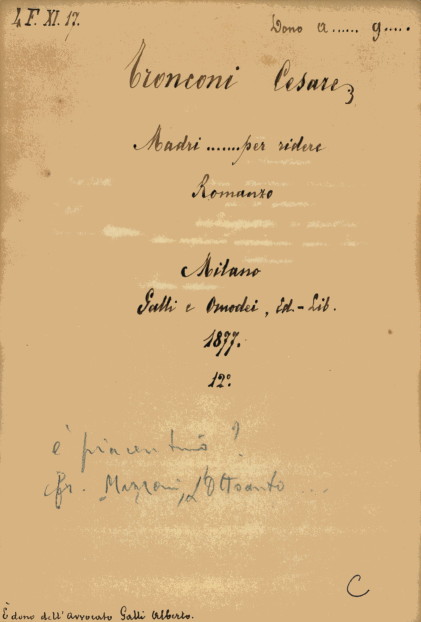 4 F. XI. 17.
Dono a...... g.....
Tronconi Cesare
Madri .......per ridere
Romanzo
Milano
Galli e Omodei, Ed.-Lib.
1877.
12º
è piacentino?
Mazzoni, L'Ottocento ...
C
È dono dell'Avvocato Galli Alberto.